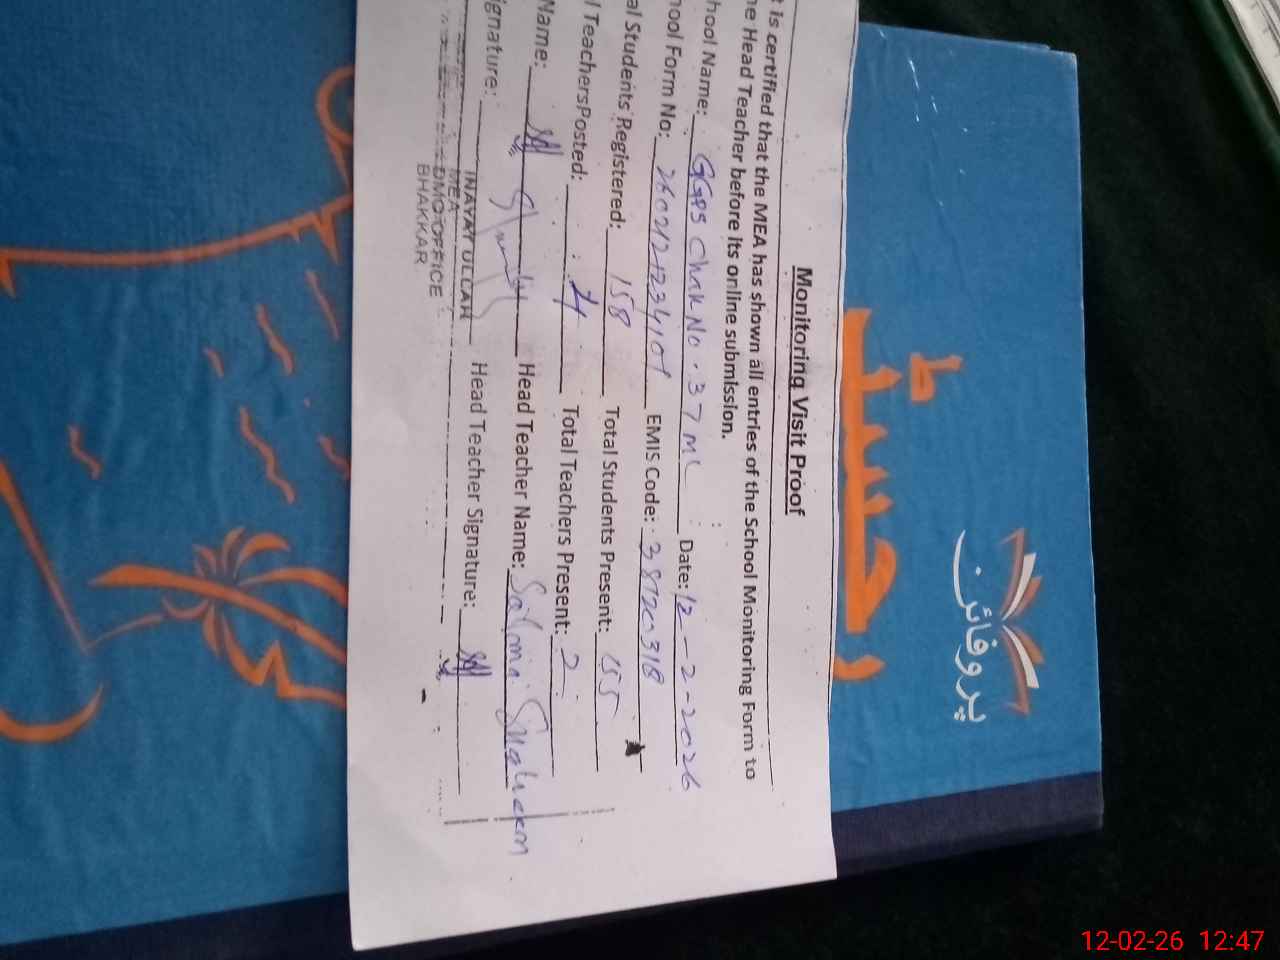 Monitoring Visit Proof
t is certified that the MEA has shown all entries of the School Monitoring Form to
he Head Teacher before its online submission.
hool Name: GGPS Chak No. 37 ML Date: 12-2-2026
hool Form No: EMIS Code: 38720318
al Students Registered: 158 Total Students Present: 155
l TeachersPosted: 4 Total Teachers Present: 2
Name: Head Teacher Name: Salma
ignature: Head Teacher Signature:
INAYAT ULLAH
MEA
DMO OFFICE
BHAKKAR
رجسٹر
ط
پروفائن
12-02-26 12:47